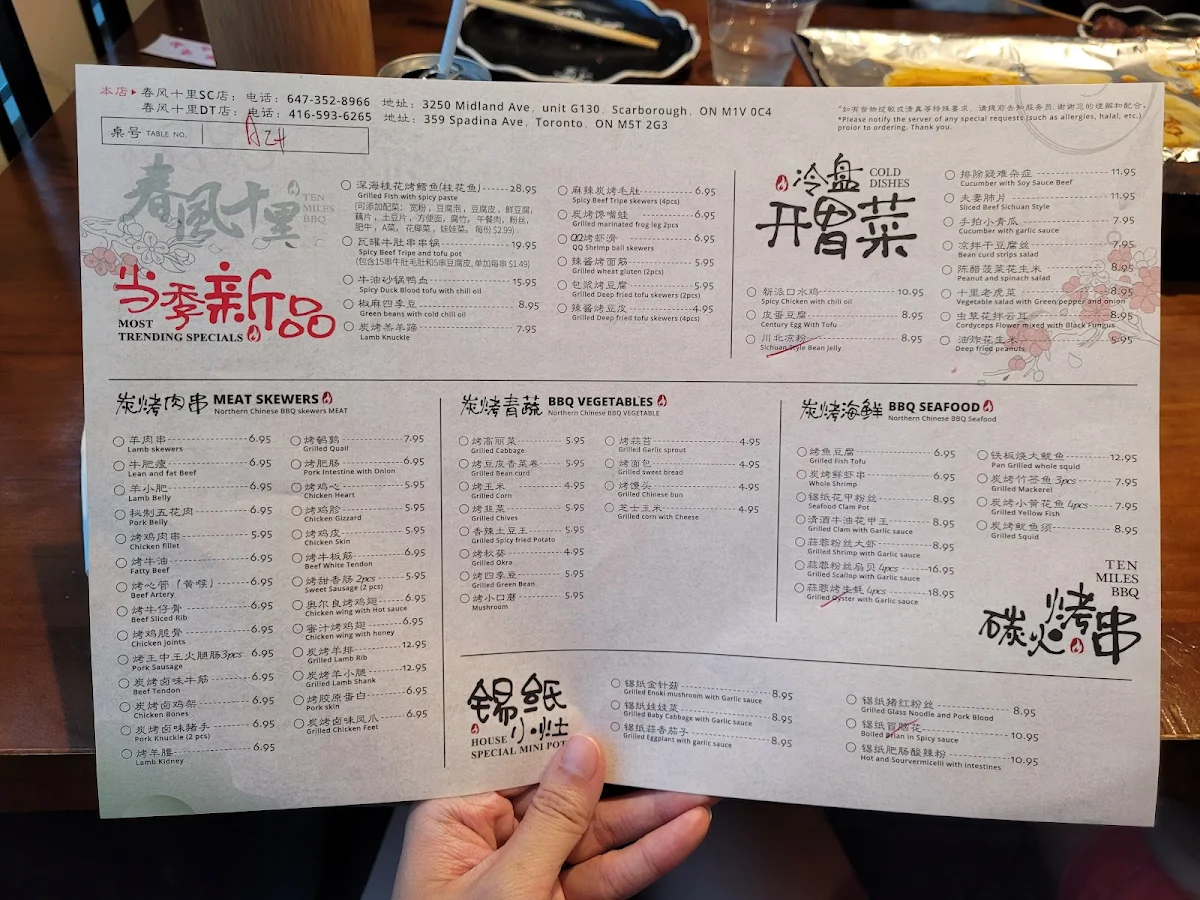 本店▸ 春风十里SC店： 电话： 647-352-8966 地址： 3250 Midland Ave, unit G130, Scarborough, ON M1V 0C4
春风十里DT店： 电话： 416-593-6265 地址： 359 Spadina Ave, Toronto, ON M5T 2G3
*如有食物过敏或清真等特殊要求，请提前告知服务员，谢谢您的理解和配合。
*Please notify the server of any special requests (such as allergies, halal, etc.)
proior to ordering. Thank you.
桌号 TABLE NO.
春風十里
TEN
MILES
BBQ
当季新品
MOST
TRENDING SPECIALS
深海桂花烤鱈鱼(桂花鱼) 28.95
Grilled Fish with spicy paste
(可添加配菜：宽粉，豆腐泡，豆腐皮，鲜豆腐，
藕片，土豆片，方便面，腐竹，午餐肉，粉丝，
肥牛，A菜，花椰菜，娃娃菜。每份 $2.99)
瓦罐牛肚串串锅 19.95
Spicy Beef Tripe and tofu pot
(包含15串牛肚毛肚和5串豆腐皮,单加每串 $1.49)
牛油砂锅鸭血 15.95
Spicy Duck Blood tofu with chili oil
椒麻四季豆 8.95
Green beans with cold chili oil
炭烤羔羊蹄 7.95
Lamb Knuckle
麻辣炭烤毛肚 6.95
Spicy Beef Tripe skewers (4pcs)
炭烤馋嘴蛙 6.95
Grilled marinated frog leg 2pcs
QQ烤虾滑 6.95
QQ Shrimp ball skewers
辣酱烤面筋 5.95
Grilled wheat gluten (2pcs)
包浆烤豆腐 5.95
Grilled Deep fried tofu skewers (2pcs)
辣酱烤豆皮 4.95
Grilled Deep fried tofu skewers (4pcs)
冷盘 COLD
DISHES
开胃菜
新派口水鸡 10.95
Spicy Chicken with chili oil
皮蛋豆腐 8.95
Century Egg With Tofu
川北凉粉 8.95
Sichuan Style Bean Jelly
排除疑难杂症 11.95
Cucumber with Soy Sauce Beef
夫妻肺片 11.95
Sliced Beef Sichuan Style
手拍小青瓜 7.95
Cucumber with garlic sauce
凉拌干豆腐丝 7.95
Bean curd strips salad
陈醋菠菜花生米 8.95
Peanut and spinach salad
十里老虎菜 8.95
Vegetable salad with Green pepper and onion
虫草花拌云耳 8.95
Cordyceps Flower mixed with Black Fungus
油炸花生米 5.95
Deep fried peanuts
炭烤肉串 MEAT SKEWERS
Northern Chinese BBQ skewers MEAT
羊肉串 6.95
Lamb skewers
牛肥瘦 6.95
Lean and fat Beef
羊小肥 6.95
Lamb Belly
秘制五花肉 6.95
Pork Belly
烤鸡肉串 5.95
Chicken fillet
烤牛油 6.95
Fatty Beef
烤心管（黄喉） 6.95
Beef Artery
烤牛仔骨 6.95
Beef Sliced Rib
烤鸡脆骨 6.95
Chicken joints
烤王中王火腿肠3pcs 6.95
Pork Sausage
炭烤卤味牛筋 6.95
Beef Tendon
炭烤卤鸡架 6.95
Chicken Bones
炭烤卤味猪手 6.95
Pork Knuckle (2 pcs)
烤羊腰 6.95
Lamb Kidney
烤鹌鹑 7.95
Grilled Quail
烤肥肠 6.95
Pork Intestine with Onion
烤鸡心 5.95
Chicken Heart
烤鸡胗 5.95
Chicken Gizzard
烤鸡皮 5.95
Chicken Skin
烤牛板筋 6.95
Beef White Tendon
烤甜香肠 2pcs 5.95
Sweet Sausage (2 pcs)
奥尔良烤鸡翅 6.95
Chicken wing with Hot sauce
蜜汁烤鸡翅 6.95
Chicken wing with honey
炭烤羊排 12.95
Grilled Lamb Rib
炭烤羊小腿 12.95
Grilled Lamb Shank
烤胶原蛋白 6.95
Pork skin
炭烤卤味凤爪 6.95
Grilled Chicken Feet
炭烤青蔬 BBQ VEGETABLES
Northern Chinese BBQ VEGETABLE
烤高丽菜 5.95
Grilled Cabbage
烤豆皮香菜卷 5.95
Grilled Bean curd
烤玉米 4.95
Grilled Corn
烤韭菜 5.95
Grilled Chives
香辣土豆王 5.95
Grilled Spicy fried Potato
烤秋葵 4.95
Grilled Okra
烤四季豆 5.95
Grilled Green Bean
烤小口蘑 5.95
Mushroom
烤蒜苔 4.95
Grilled Garlic sprout
烤面包 4.95
Grilled sweet bread
烤馒头 4.95
Grilled Chinese bun
芝士玉米 4.95
Grilled corn with Cheese
炭烤海鲜 BBQ SEAFOOD
Northern Chinese BBQ Seafood
烤鱼豆腐 6.95
Grilled Fish Tofu
炭烤鲜虾串 6.95
Whole Shrimp
锡纸花甲粉丝 8.95
Seafood Clam Pot
清酒牛油花甲王 8.95
Grilled Clam with Garlic sauce
蒜蓉粉丝大虾 8.95
Grilled Shrimp with Garlic sauce
蒜蓉粉丝扇贝 4pcs 16.95
Grilled Scallop with Garlic sauce
蒜蓉烤生蚝 4pcs 18.95
Grilled Oyster with Garlic sauce
铁板焕大鱿鱼 12.95
Pan Grilled whole squid
炭烤竹签鱼 3pcs 7.95
Grilled Mackerel
炭烤小黄花鱼 4pcs 7.95
Grilled Yellow Fish
炭烤鱿鱼须 8.95
Grilled Squid
TEN
MILES
BBQ
碳火烤串
锡纸
小灶
HOUSE
SPECIAL MINI POT
锡纸金针菇 8.95
Grilled Enoki mushroom with Garlic sauce
锡纸娃娃菜 8.95
Grilled Baby Cabbage with Garlic sauce
锡纸蒜香茄子 8.95
Grilled Eggplant with garlic sauce
锡纸猪红粉丝 8.95
Grilled Glass Noodle and Pork Blood
锡纸冒脑花 10.95
Boiled Brian in Spicy sauce
锡纸肥肠酸辣粉 10.95
Hot and Sourvermicelli with intestines